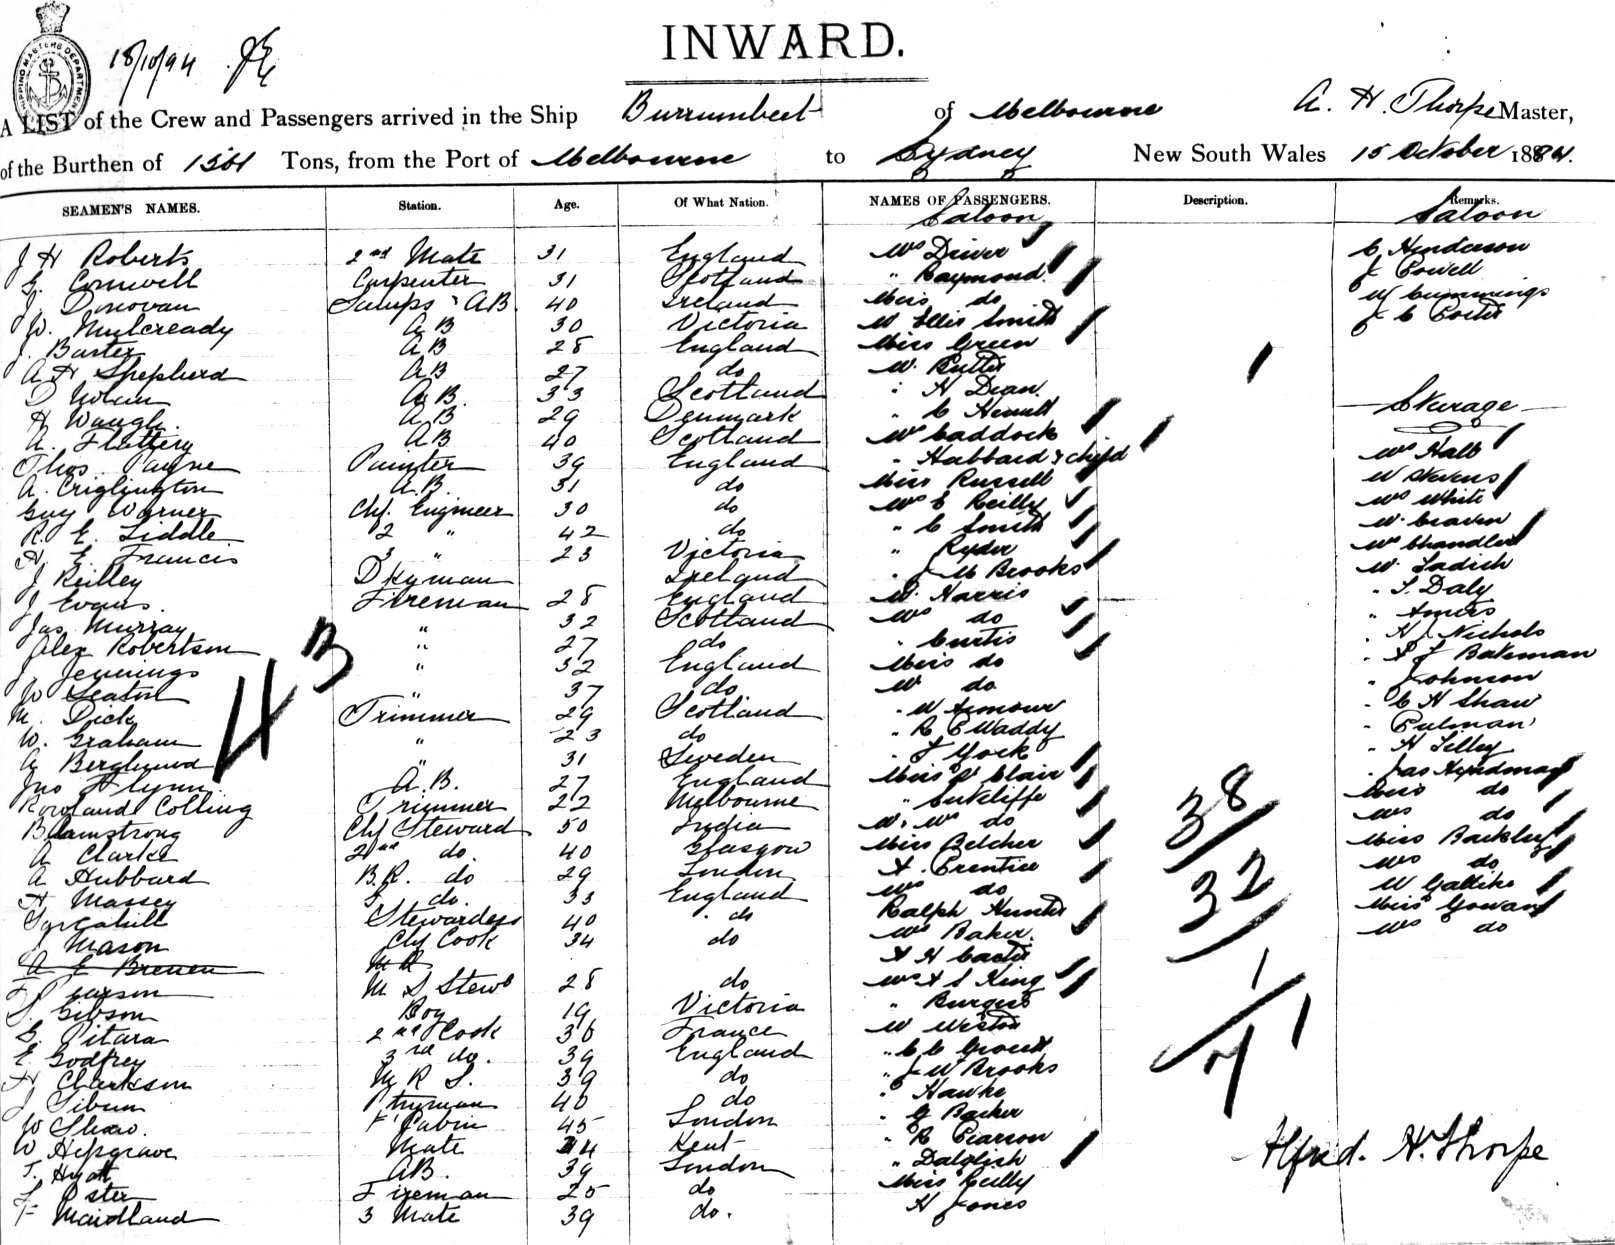 SHIPPING MASTERS DEPARTMENT
18/10/94
INWARD.
A LIST of the Crew and Passengers arrived in the Ship Burrumbeet of Melbourne A. H. Thorpe Master,
of the Burthen of Tons, from the Port of Melbourne to Sydney New South Wales 15 October 188
SEAMEN'S NAMES. Station. Age. Of What Nation. NAMES OF PASSENGERS. Description. Remarks.
Saloon Saloon
J H Roberts 2nd Mate 31 England Mrs Driver C Henderson
G. Cornwell Carpenter 31 Scotland " Raymond J Powell
J Donovan Lamps & AB 40 Ireland Miss do W Cummings
W. Mulcready AB 30 Victoria W Ellis Smith J C Porter
J. Baxter AB 28 England Miss Green
A H Shepherd AB 27 do W. Butler
D Nolan AB. 33 Scotland " H Dean
H Waugh. AB 29 Denmark " C Hewitt Steerage
A. Flattery AB 40 Scotland Mrs Caddock Mrs Hall
Thos Payne Painter 39 England " Habbard & child W Stevens
A. Criglington A.B. 31 do Miss Russell Mrs White
Guy Warner Chf. Engineer 30 do Mrs E Reilly W. Craven
R E. Liddle 2 " 42 do " C Smith Mrs Chandler
H E Francis 3 " 23 Victoria " Ryder W. Ladich
J Reilley Dkyman Ireland " J M Brooks " T. Daly
J Evans. Fireman 28 England W. Harris
Jas Murray " 32 Scotland Mrs do " H J Nichols
Alex Robertson " 27 do " Curtis " A J Bateman
J Jennings " 32 England Miss do " Johnson
W Seaton " 37 do W do " C H Shaw
M. Dick Trimmer 29 Scotland " W Armour " Pulman
W. Graham " 23 do " R C Waddy " H Tilley
A Berglund " 31 Sweden " J York
Jno Flynn. A.B. 27 England Miss St Clair Miss do
Rowland Colling Trimmer 22 Melbourne " Sutcliffe Mrs do
B Armstrong Chf Steward 50 India W. Mrs do Miss Barkley
A Clarke 2nd do. 40 Glasgow Miss Belcher Mrs do
A Hubbard B.R. do 29 London A. Prentice W Gallike
H Massey 3 do. 33 England Mrs do Miss Gowan
Stewardess 40 do Ralph Hunter Mrs do
Mason Chf Cook 34 do Mrs Baker.
A E Brenen M R A H Carter
F Pearson M S Stewd 28 do Mrs A S King
Gibson Boy 19 Victoria " Burgess
G. Pitara 2nd Cook 36 France W Weston
E Godfrey 3rd do. 39 England " C C Groutt
H Clarkson M R S. 39 do " J W Brooks
J Tibun Ptryman 40 do " Hawke
W Shaw. F Cabin 45 London " G Barker
W Hipgrave Mate 44 Kent " R Pearson
T. Hyatt AB. 39 London " Dalglish
Fireman 25 do Miss Reilly
F Maidland 3 Mate 39 do. H Jones
43
38
32
1
71
Alfred. H. Thorpe